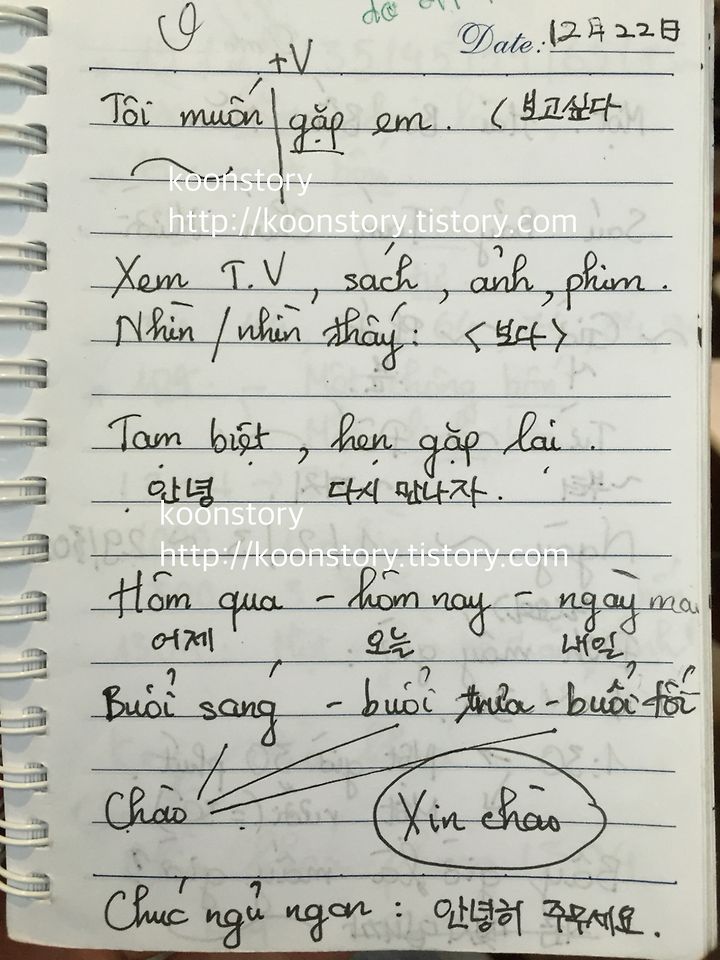 Date: 12月 22日
+V
Tôi muốn gặp em. (보고싶다
koonstory
http://koonstory.tistory.com
Xem T.V, sách, ảnh, phim.
Nhìn / nhìn thấy: <보다>
Tạm biệt, hẹn gặp lại.
안녕 다시 만나자.
koonstory
http://koonstory.tistory.com
Hôm qua - hôm nay - ngày mai
어제 오늘 내일
Buổi sáng - buổi trưa - buổi tối
Chào Xin chào
Chúc ngủ ngon: 안녕히 주무세요.